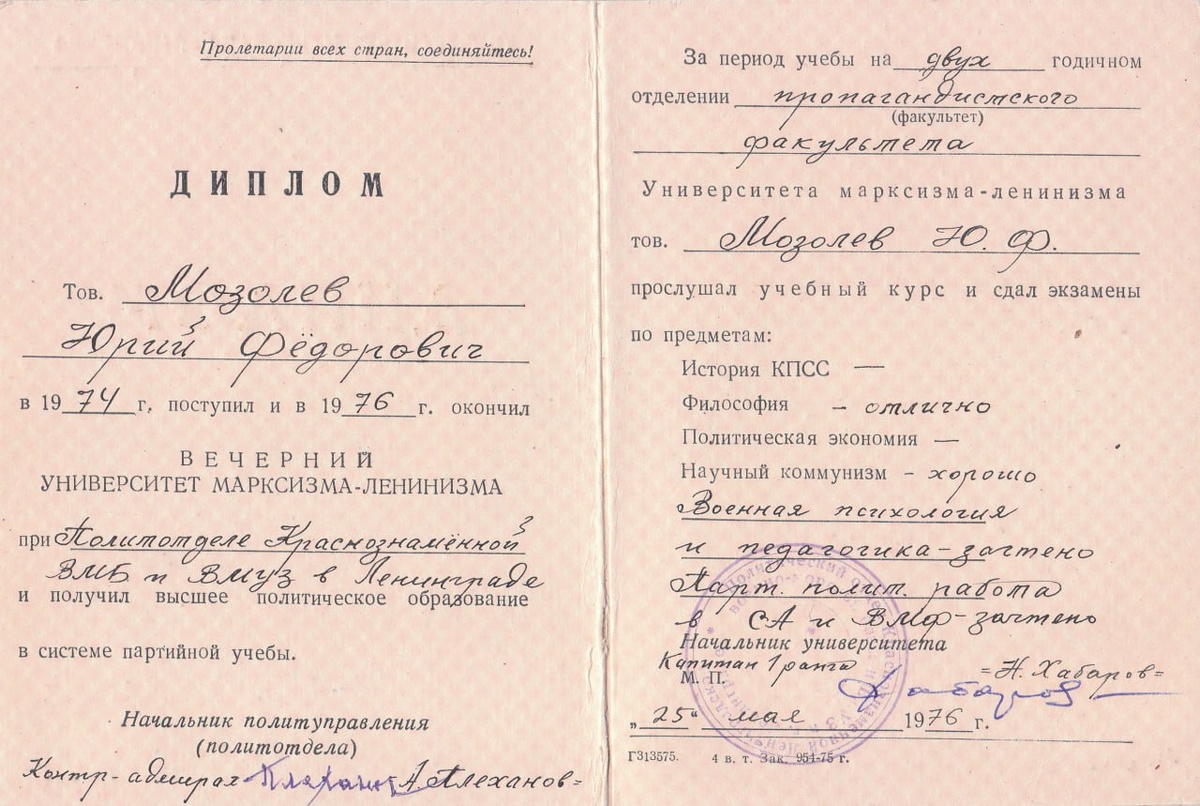 Пролетарии всех стран, соединяйтесь!
ДИПЛОМ
Тов. Мозолев
Юрий Фёдорович
в 1974 г. поступил и в 1976 г. окончил
ВЕЧЕРНИЙ
УНИВЕРСИТЕТ МАРКСИЗМА-ЛЕНИНИЗМА
при Политотделе Краснознамённой
ВМБ и ВМУЗ в Ленинграде
и получил высшее политическое образование
в системе партийной учебы.
Начальник политуправления
(политотдела)
Контр-адмирал Плеханов А. Плеханов=
За период учебы на двух годичном
отделении пропагандистского
(факультет)
факультета
Университета марксизма-ленинизма
тов. Мозолев Ю. Ф.
прослушал учебный курс и сдал экзамены
по предметам:
История КПСС —
Философия - отлично
Политическая экономия —
Научный коммунизм - хорошо
Военная психология
и педагогика-зачтено
Парт. полит. работа
в СА и ВМФ-зачтено
Начальник университета
Капитан 1 ранга =Н. Хабаров=
М. П. Хабаров
„25“ мая 1976 г.
Г313575. 4 в. т. Зак. 954-75 г.